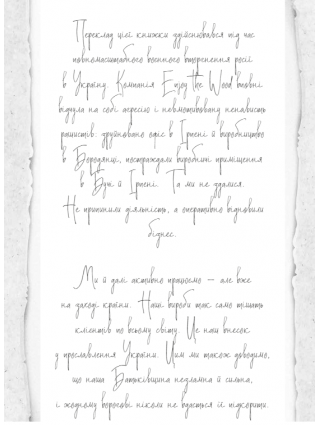 Переклад цієї книжки здійснювався під час
повномасштабного воєнного вторгнення росії
в Україну. Компанія Enjoy the Wood вповні
відчула на собі агресію і невмотивовану ненависть
рашистів: зруйновано офіс в Ірпені й виробництво
в Бородянці, постраждали виробничі приміщення
в Бучі й Ірпені. Та ми не здалися.
Не припинили діяльність, а оперативно відновили
бізнес.
Ми й далі активно працюємо — але вже
на заході країни. Наші вироби так само тішать
клієнтів по всьому світу. Це наш внесок
у прославлення України. Цим ми також доводимо,
що наша Батьківщина незламна й сильна,
і жодному ворогові ніколи не вдасться її підкорити.